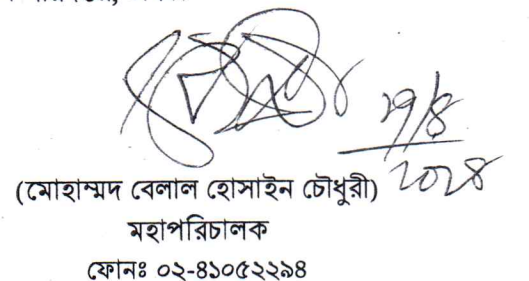 ২৭/৪
২০২৪
(মোহাম্মদ বেলাল হোসাইন চৌধুরী)
মহাপরিচালক
ফোনঃ ০২-৪১০৫২২৯৪